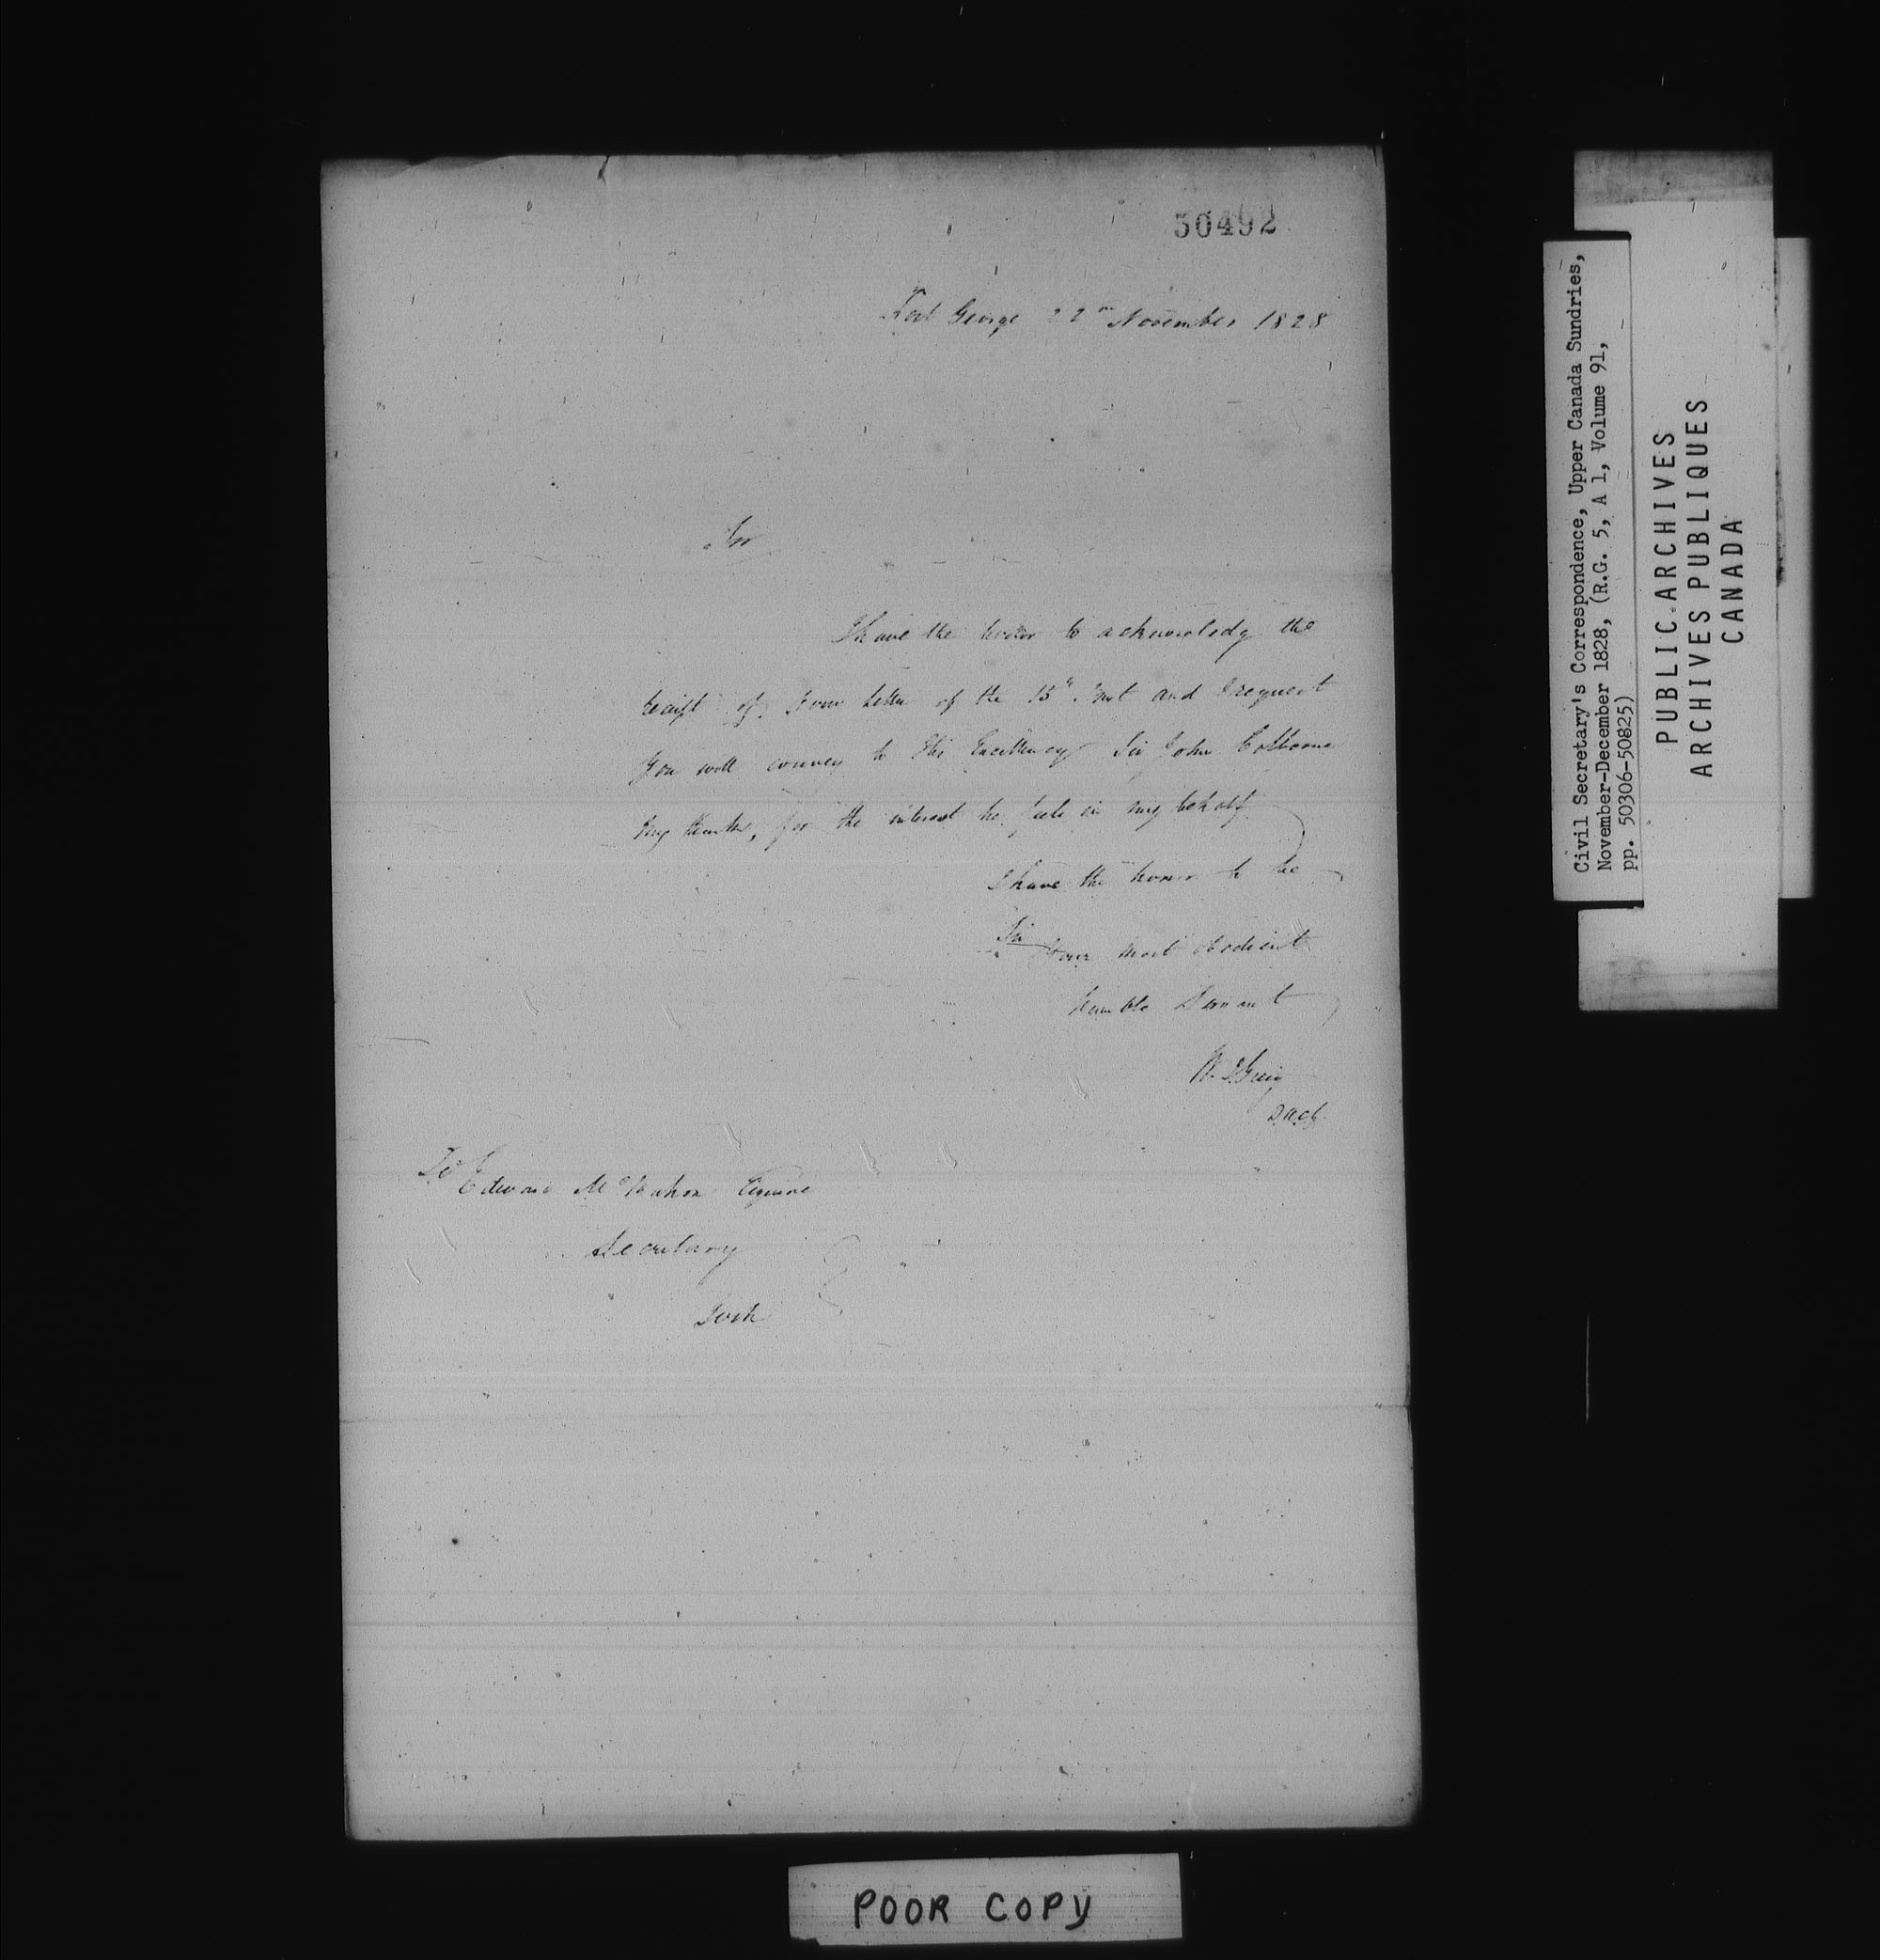 50492
Fort George 22nd November 1828
Sir
I have the honor to acknowledg the
receipt of Your Letter of the 15th Inst and I request
You will convey to His Excellency Sir John Colborne
My thanks, for the interest he feels in my behalf
I have the honor to be
Sir
Your most obedient
Humble Servant
D.A.C.G.
To Edward McMahon Esquire
Secretary
York
Civil Secretary's Correspondence, Upper Canada Sundries,
November-December 1828, (R.G. 5, A 1, Volume 91,
pp. 50306-50825)
PUBLIC ARCHIVES
ARCHIVES PUBLIQUES
CANADA
POOR COPY